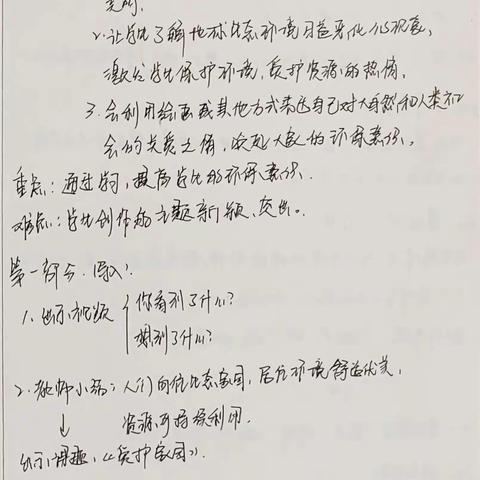 2. 让学生了解地球生态环境日益恶化的现象,
激发学生保护环境,爱护资源的热情。
3. 会利用绘画或其他方式表达自己对大自然和人类社
会的关爱之情,唤起大众的环保意识。
重点:通过学习,提高学生的环保意识.
难点:学生创作的主题新颖,突出。
第一部分:导入:
1. 出示视频 { 你看到了什么?
想到了什么?
2. 教师小结:人们向往生态家园,居住环境舒适优美,
↓ 资源可持续利用.
出示课题,《爱护家园》.